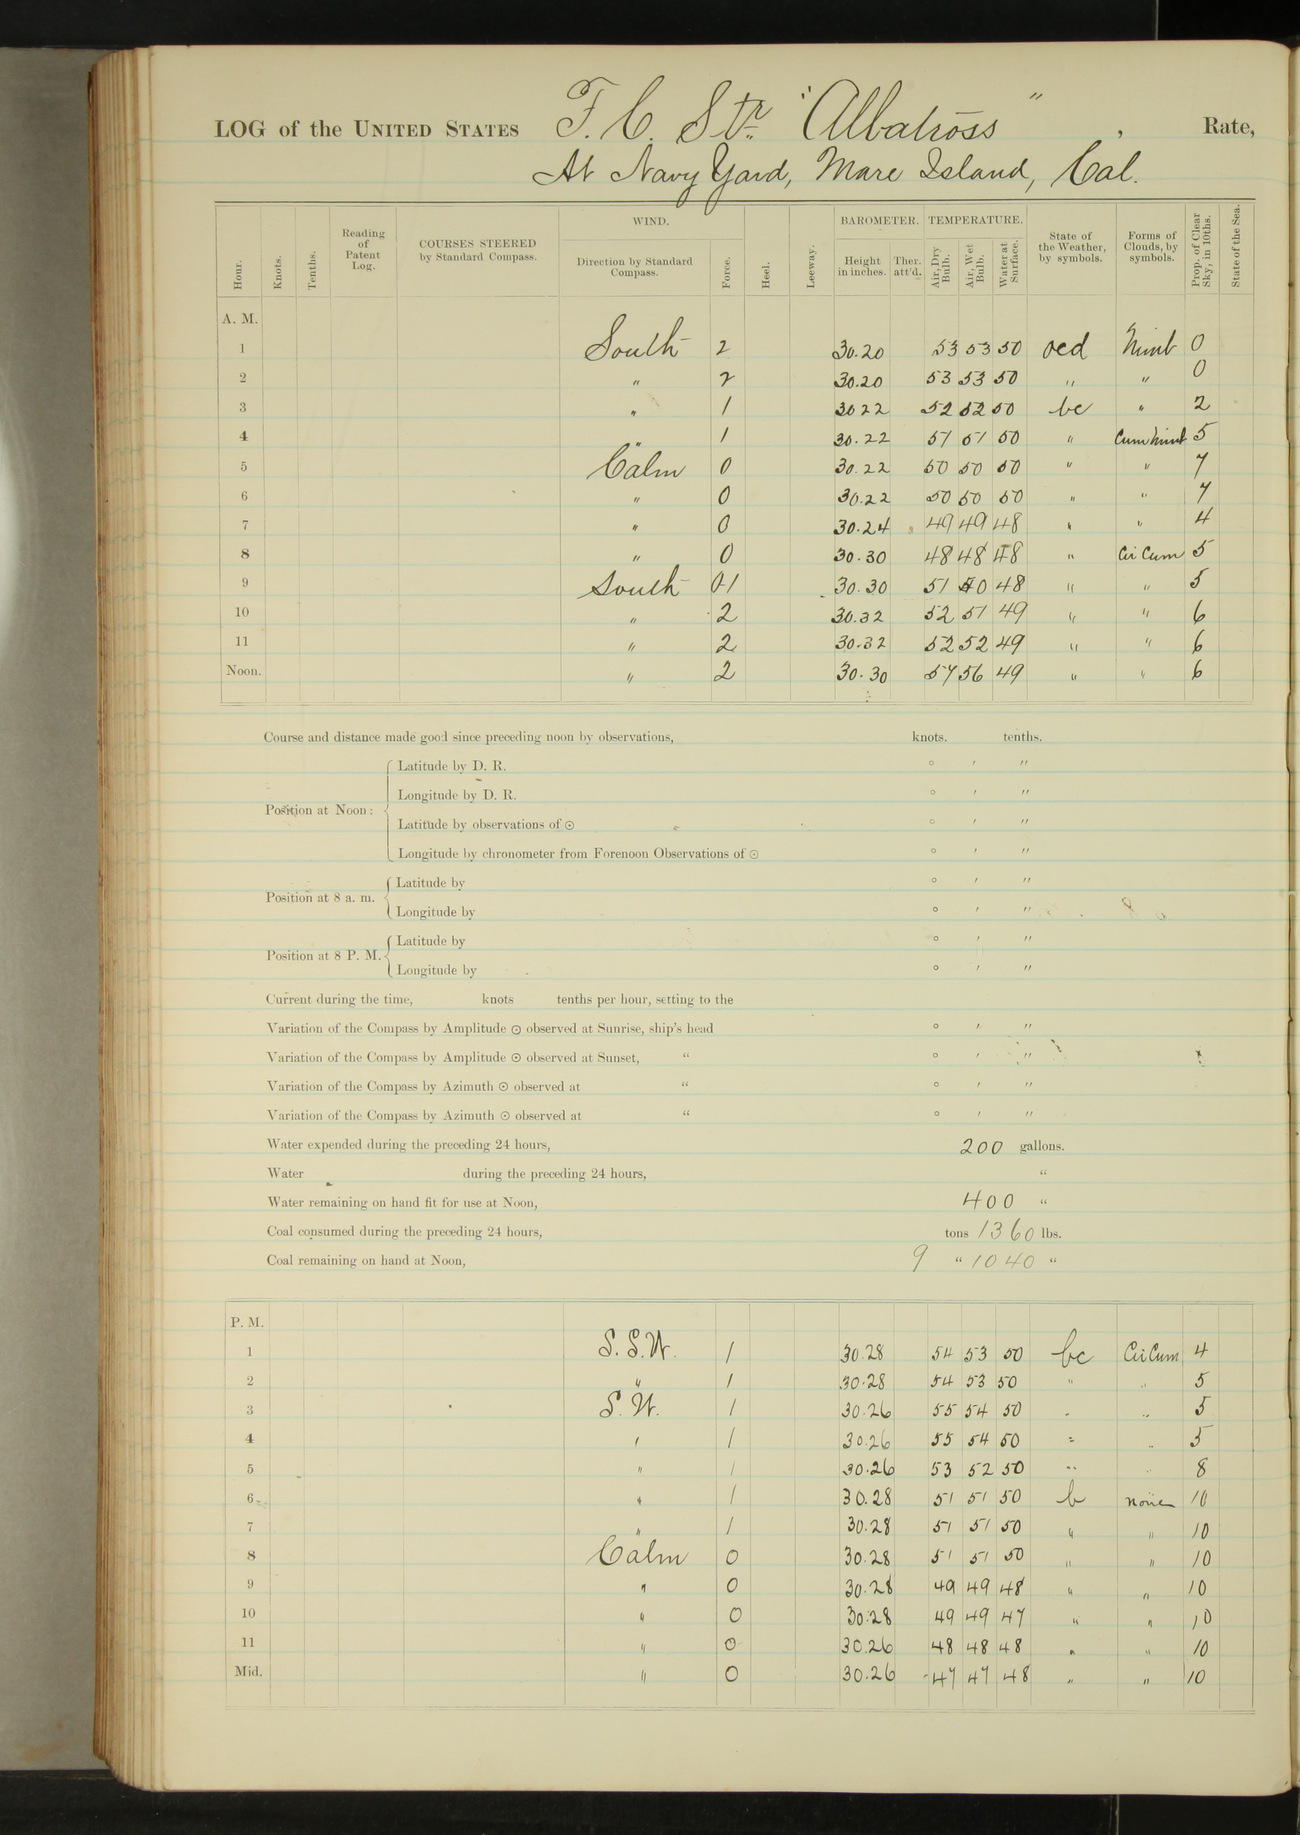 LOG of the UNITED STATES F. C. Str. "Albatross", Rate,
At Navy Yard, Mare Island, Cal.
Hour. Knots. Tenths. Reading of Patent Log. COURSES STEERED by Standard Compass. WIND. Direction by Standard Compass. Force. Heel. Leeway. BAROMETER. Height in inches. Ther. att'd. TEMPERATURE. Air, Dry Bulb. Air, Wet Bulb. Water at Surface. State of the Weather, by symbols. Forms of Clouds, by symbols. Prop. of Clear Sky, in 10ths. State of the Sea.
A. M.
1 South 2 30.20 53 53 50 ocd Nimb 0
2 " 2 30.20 53 53 50 " " 0
3 " 1 30 22 52 52 50 bc " 2
4 " 1 30.22 51 51 50 " Cum Nimb 5
5 Calm 0 30.22 50 50 50 " " 7
6 " 0 30.22 50 50 50 " " 7
7 " 0 30.24 49 49 48 " " 4
8 " 0 30.30 48 48 48 " Cir Cum 5
9 South 0-1 30.30 51 50 48 " " 5
10 " 2 30.32 52 51 49 " " 6
11 " 2 30.32 52 52 49 " " 6
Noon. " 2 30.30 57 56 49 " " 6
Course and distance made good since preceding noon by observations, knots. tenths.
Position at Noon:
Latitude by D. R. ° ′ ″
Longitude by D. R. ° ′ ″
Latitude by observations of ☉ ° ′ ″
Longitude by chronometer from Forenoon Observations of ☉ ° ′ ″
Position at 8 a. m.
Latitude by ° ′ ″
Longitude by ° ′ ″
Position at 8 P. M.
Latitude by ° ′ ″
Longitude by ° ′ ″
Current during the time, knots tenths per hour, setting to the
Variation of the Compass by Amplitude ☉ observed at Sunrise, ship's head ° ′ ″
Variation of the Compass by Amplitude ☉ observed at Sunset, " ° ′ ″
Variation of the Compass by Azimuth ☉ observed at " ° ′ ″
Variation of the Compass by Azimuth ☉ observed at " ° ′ ″
Water expended during the preceding 24 hours, 200 gallons.
Water during the preceding 24 hours, "
Water remaining on hand fit for use at Noon, 400 "
Coal consumed during the preceding 24 hours, tons 1360 lbs.
Coal remaining on hand at Noon, 9 " 1040 "
P. M.
1 S. S. W. 1 30.28 54 53 50 bc Cir Cum 4
2 " 1 30.28 54 53 50 " " 5
3 S. W. 1 30.26 55 54 50 " " 5
4 " 1 30.26 55 54 50 " " 5
5 " 1 30.26 53 52 50 " " 8
6 " 1 30.28 51 51 50 b none 10
7 " 1 30.28 51 51 50 " " 10
8 Calm 0 30.28 51 51 50 " " 10
9 " 0 30.28 49 49 48 " " 10
10 " 0 30.28 49 49 47 " " 10
11 " 0 30.26 48 48 48 " " 10
Mid. " 0 30.26 47 47 48 " " 10